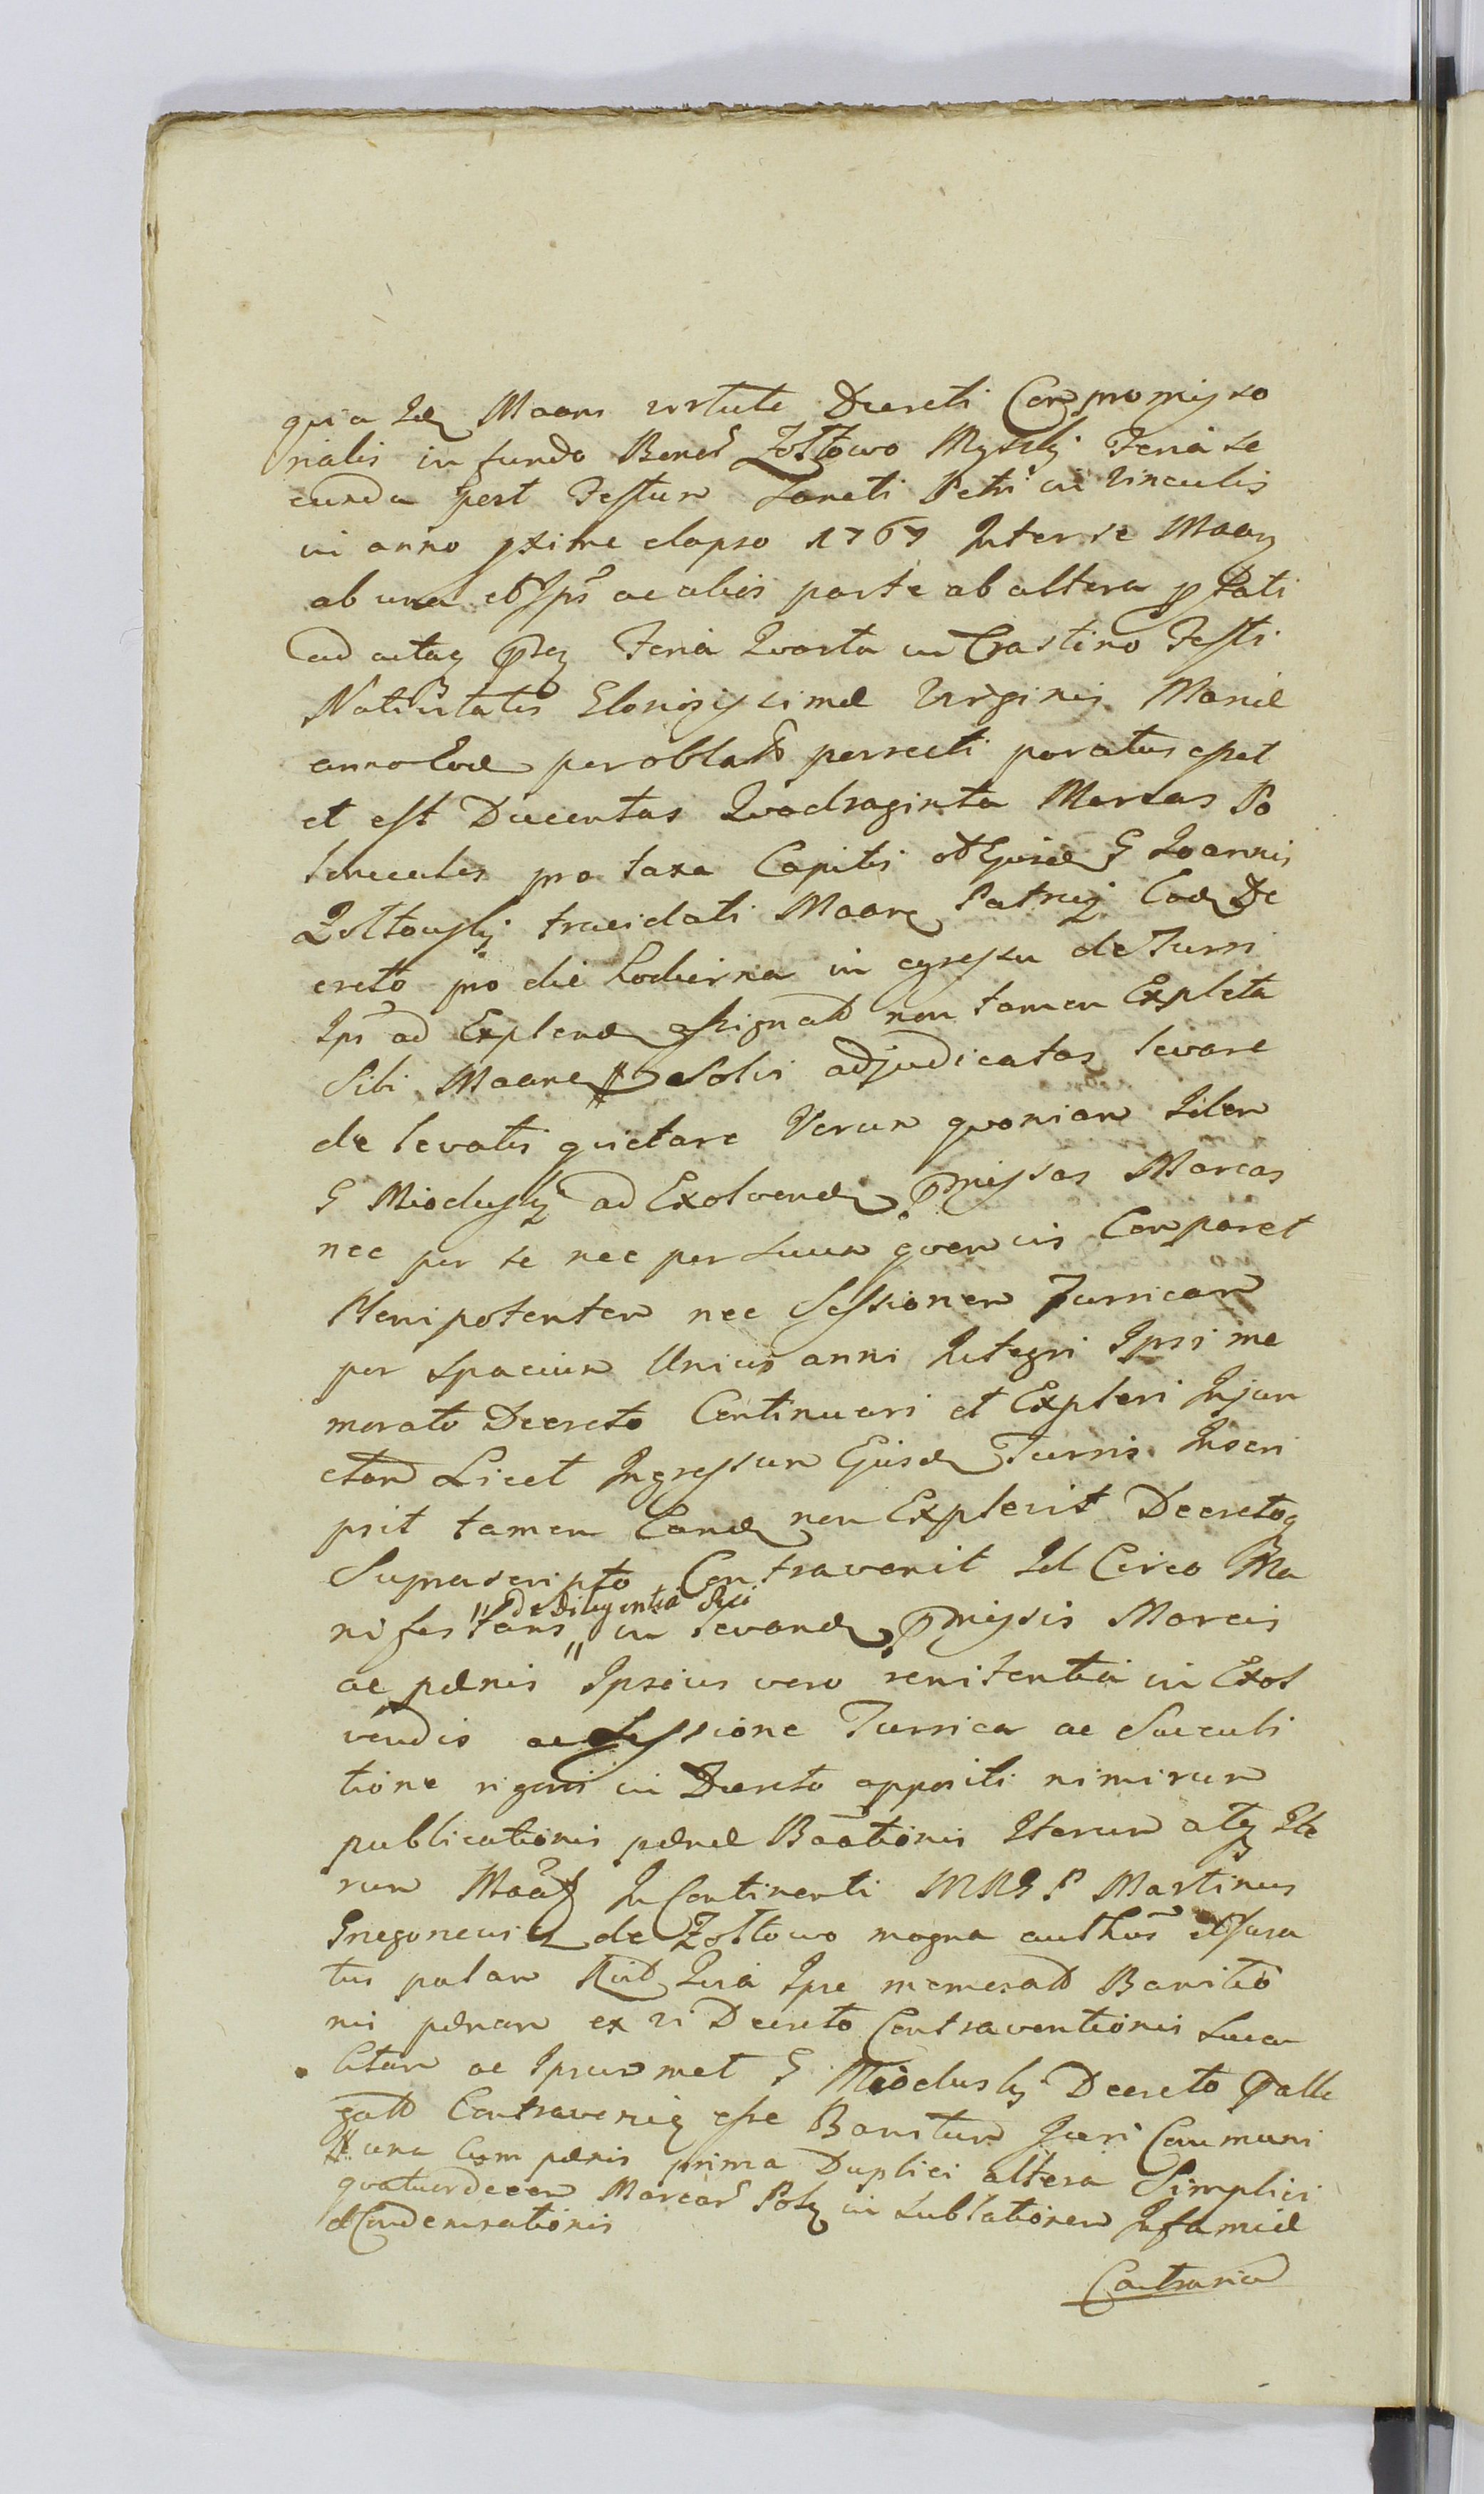 quia Id Maans virtute Decreti Compromisso
rialis in fundo Bonor Zołtowo Myśki Feria se
cunda post Festum Sancti Petri in Vinculis
in anno pxime elapso 1767 Inter se Maan
ab una et Ips ac alios parte ab altera p Lati
ad acta Feria Quarta in Crastino Festi
Nativitatis Gloriosissimæ Virginis Mariæ
anno Eod per oblatam porrecti paratus esset
et est Ducentas Quadraginta Marcas Po
lonicales pro taxa Capitis ol Ejusd G Joannis
Zołtowski trucidati Maans Patrui Eod De
creto pro die hodierna in egressu de Turri
Ips ad Explend assignat non tamen Expleta
Sibi Maanti soli adjudicatas levare
de levatis quietare Verum quoniam Idem
G Mioduski ad Exolvend pmissas Marcas
nec per se nec per suum quemvis Comparet
Plenipotentem nec Sessionem Turricam
per spacium Unius anni Integri Ipsi me
morato Decreto Continuari et Expleri Injun
ctam Licet Ingressum Ejusd Turris Inscri
psit tamen Eand non Explevit Decretoq
Suprascripto Contravenit Id Circo Ma
nifestans " de diligentia Sui " in levand pmissis Marcis
ac pænis Ipsius vero renitentia in Exol
vendis ac Sessione Turrica ac Succubi
tione rigoris in Decreto appositi nimirum
publicationis pænæ Baationis Iterum atq Ite
rum Maat In Continenti MRG P Martinus
Gregorewicz de Zołtowo magna author et Jura
tus palam Quia Ipse memorat Banitio
nis pænam ex vi Decreto Contraventionis Succu
bitam ac Ipsummet G Mioduski Decreto palle
gat Contravenien esse Banitum Juri Communi
# una Cum pænis prima Duplici altera Simplici
quatuordecem Marcar Pol in Sublationem Infamiæ
et Condemnationis
Contraria